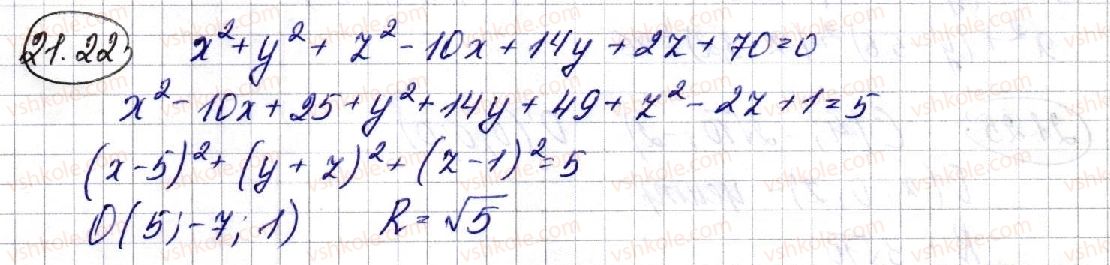 21.22) x² + y² + z² - 10x + 14y + 2z + 70 = 0
x² - 10x + 25 + y² + 14y + 49 + z² - 2z + 1 = 5
(x - 5)² + (y + z)² + (z - 1)² = 5
O(5; -7; 1) R = √5